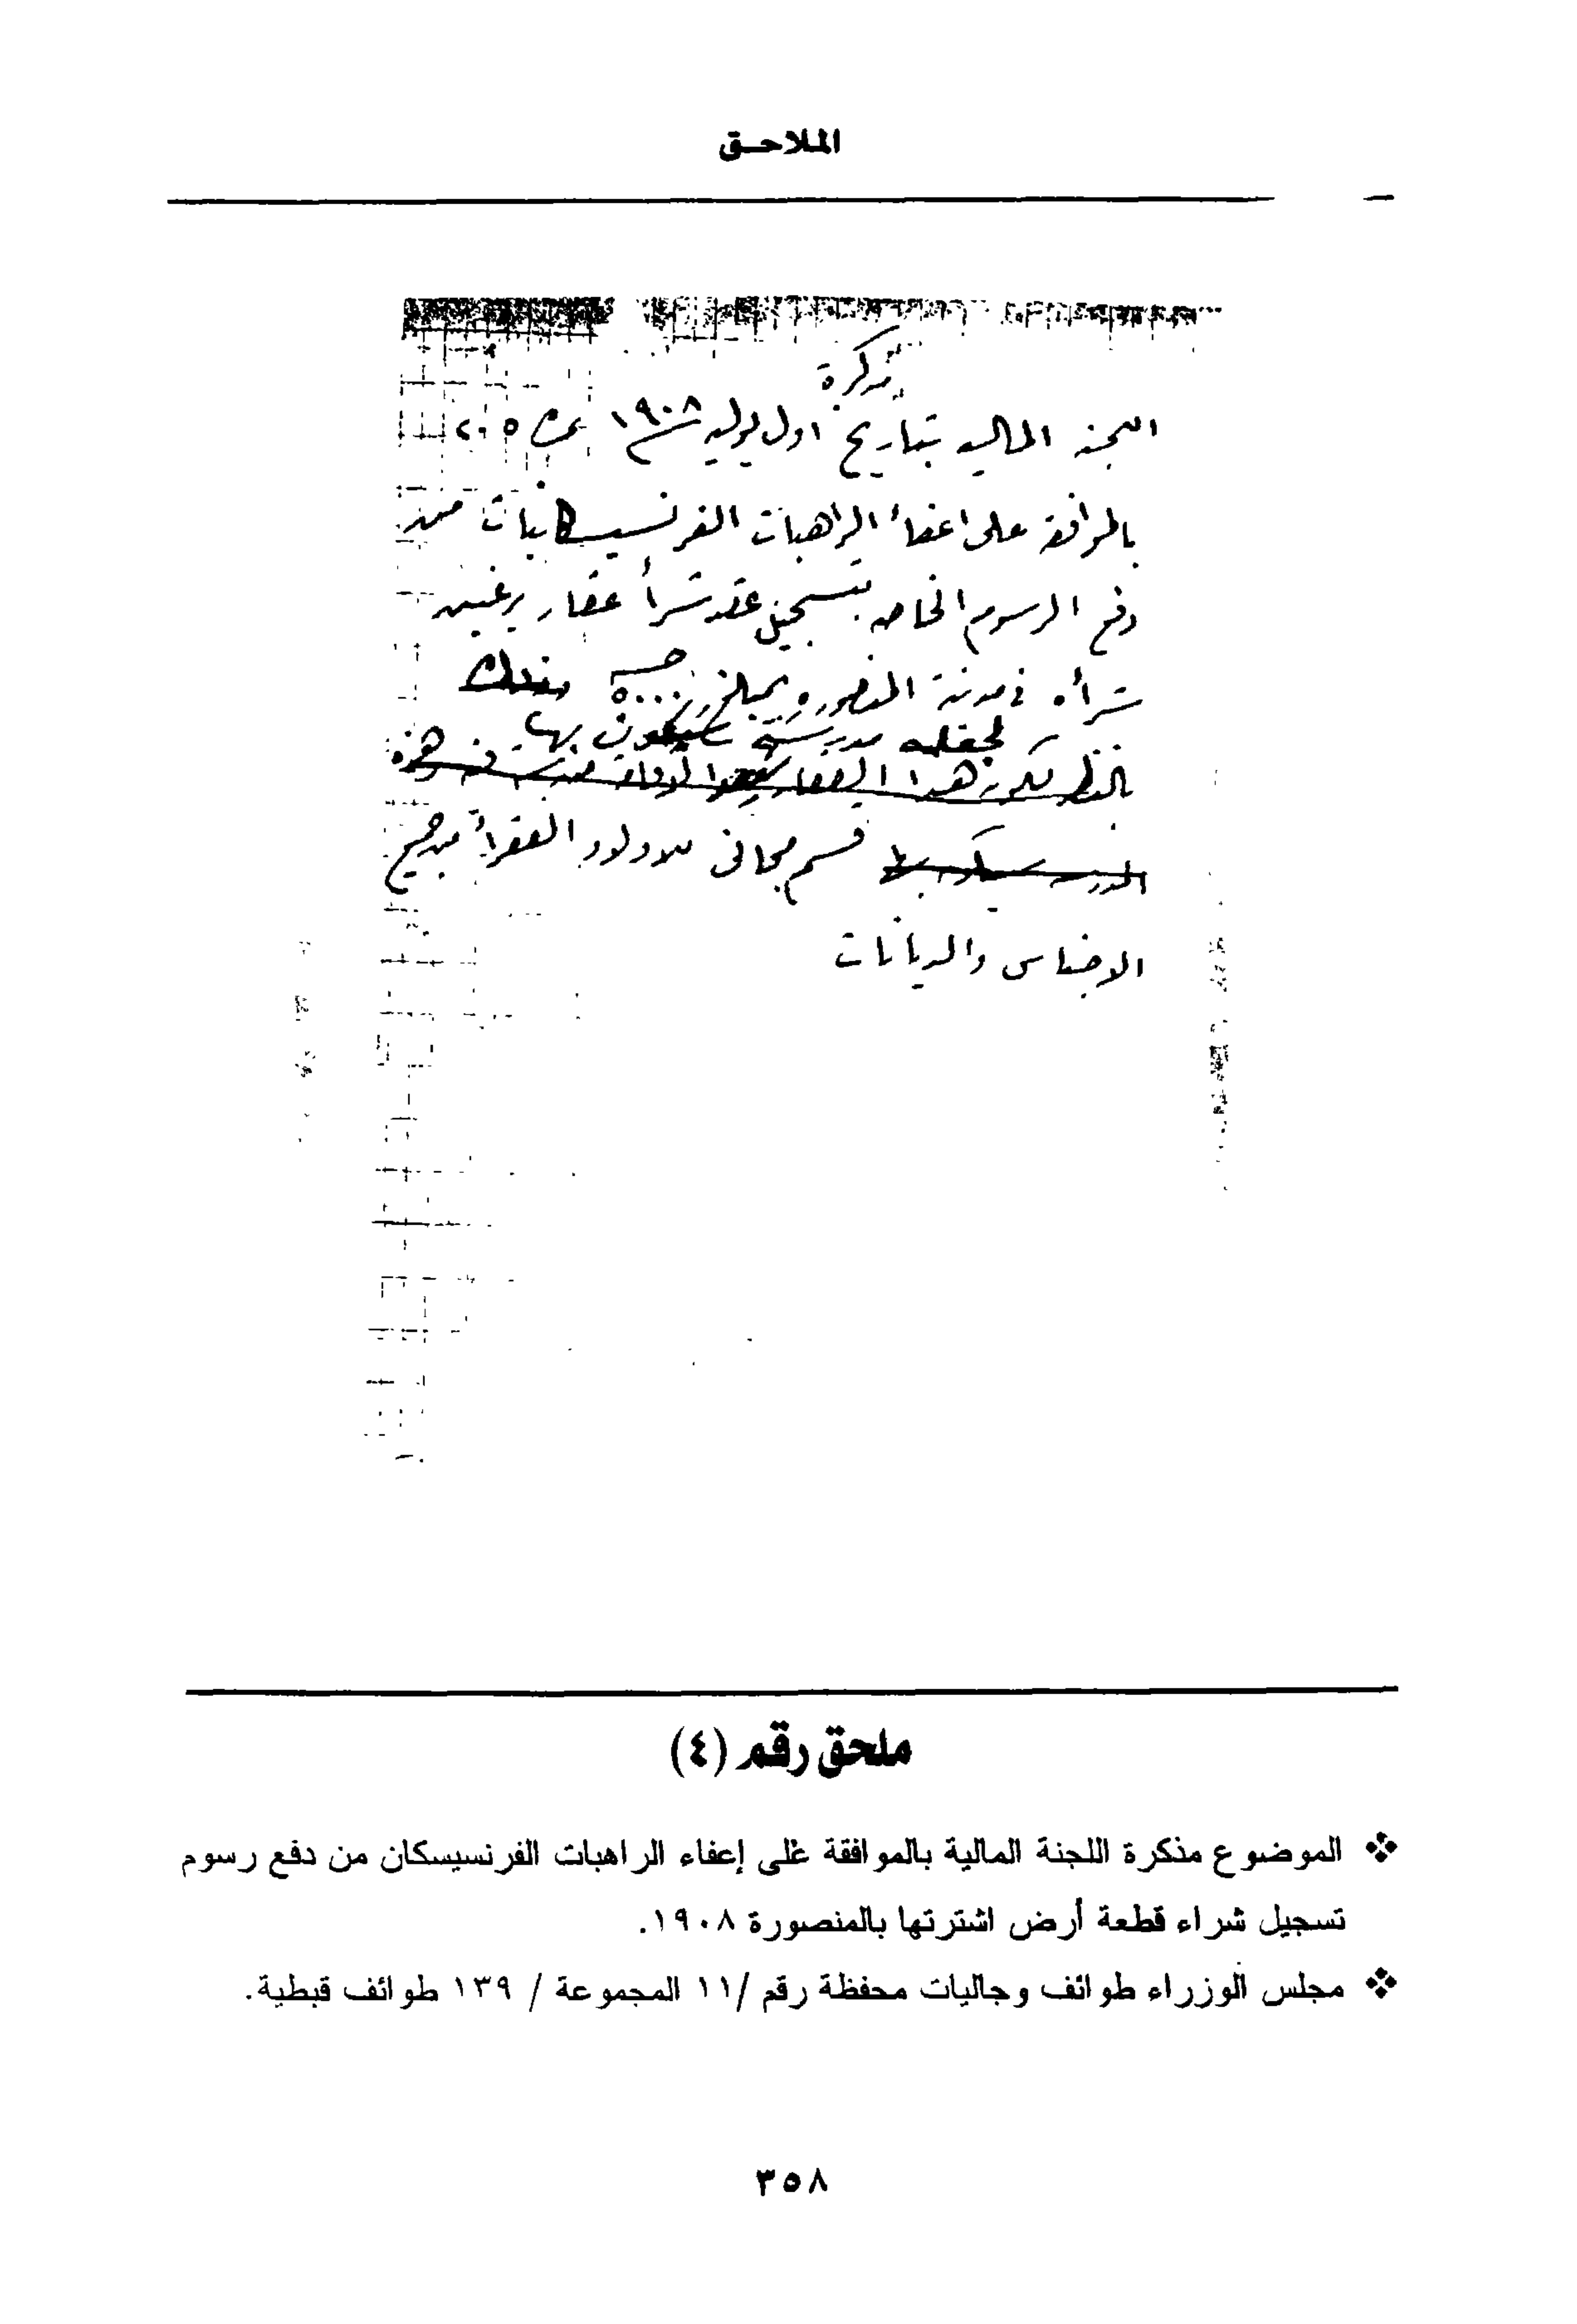 الملاحـق
مذكرة
اللجنه الماليه بتاريخ اول يوليه سنة ١٩٠٨ نمرة ٢٠٥
بالموافقة على اعفاء الراهبات الفرنسيسكانيات من
دفع الرسوم الخاصه بتسجيل عقد شراء عقار يرغبن
شراه فى مدينة المنصوره بمبلغ ٥٠٠٠ جـ وذلك
لجعله مدرسة سيكون بها
بالنظر لكون هذا العقار هذه
المدرسه سيكون بها قسم مجانى للاولاد الفقراء من جميع
الاجناس والديانات
ملحق رقم (٤)
❖ الموضوع مذكرة اللجنة المالية بالموافقة على إعفاء الراهبات الفرنسيسكان من دفع رسوم
تسجيل شراء قطعة أرض اشترتها بالمنصورة ١٩٠٨.
❖ مجلس الوزراء طوائف وجاليات محفظة رقم /١١ المجموعة / ١٣٩ طوائف قبطية.
٣٥٨